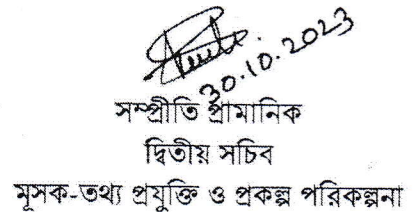 30.10.2023
সম্প্রীতি প্রামানিক
দ্বিতীয় সচিব
মূসক-তথ্য প্রযুক্তি ও প্রকল্প পরিকল্পনা